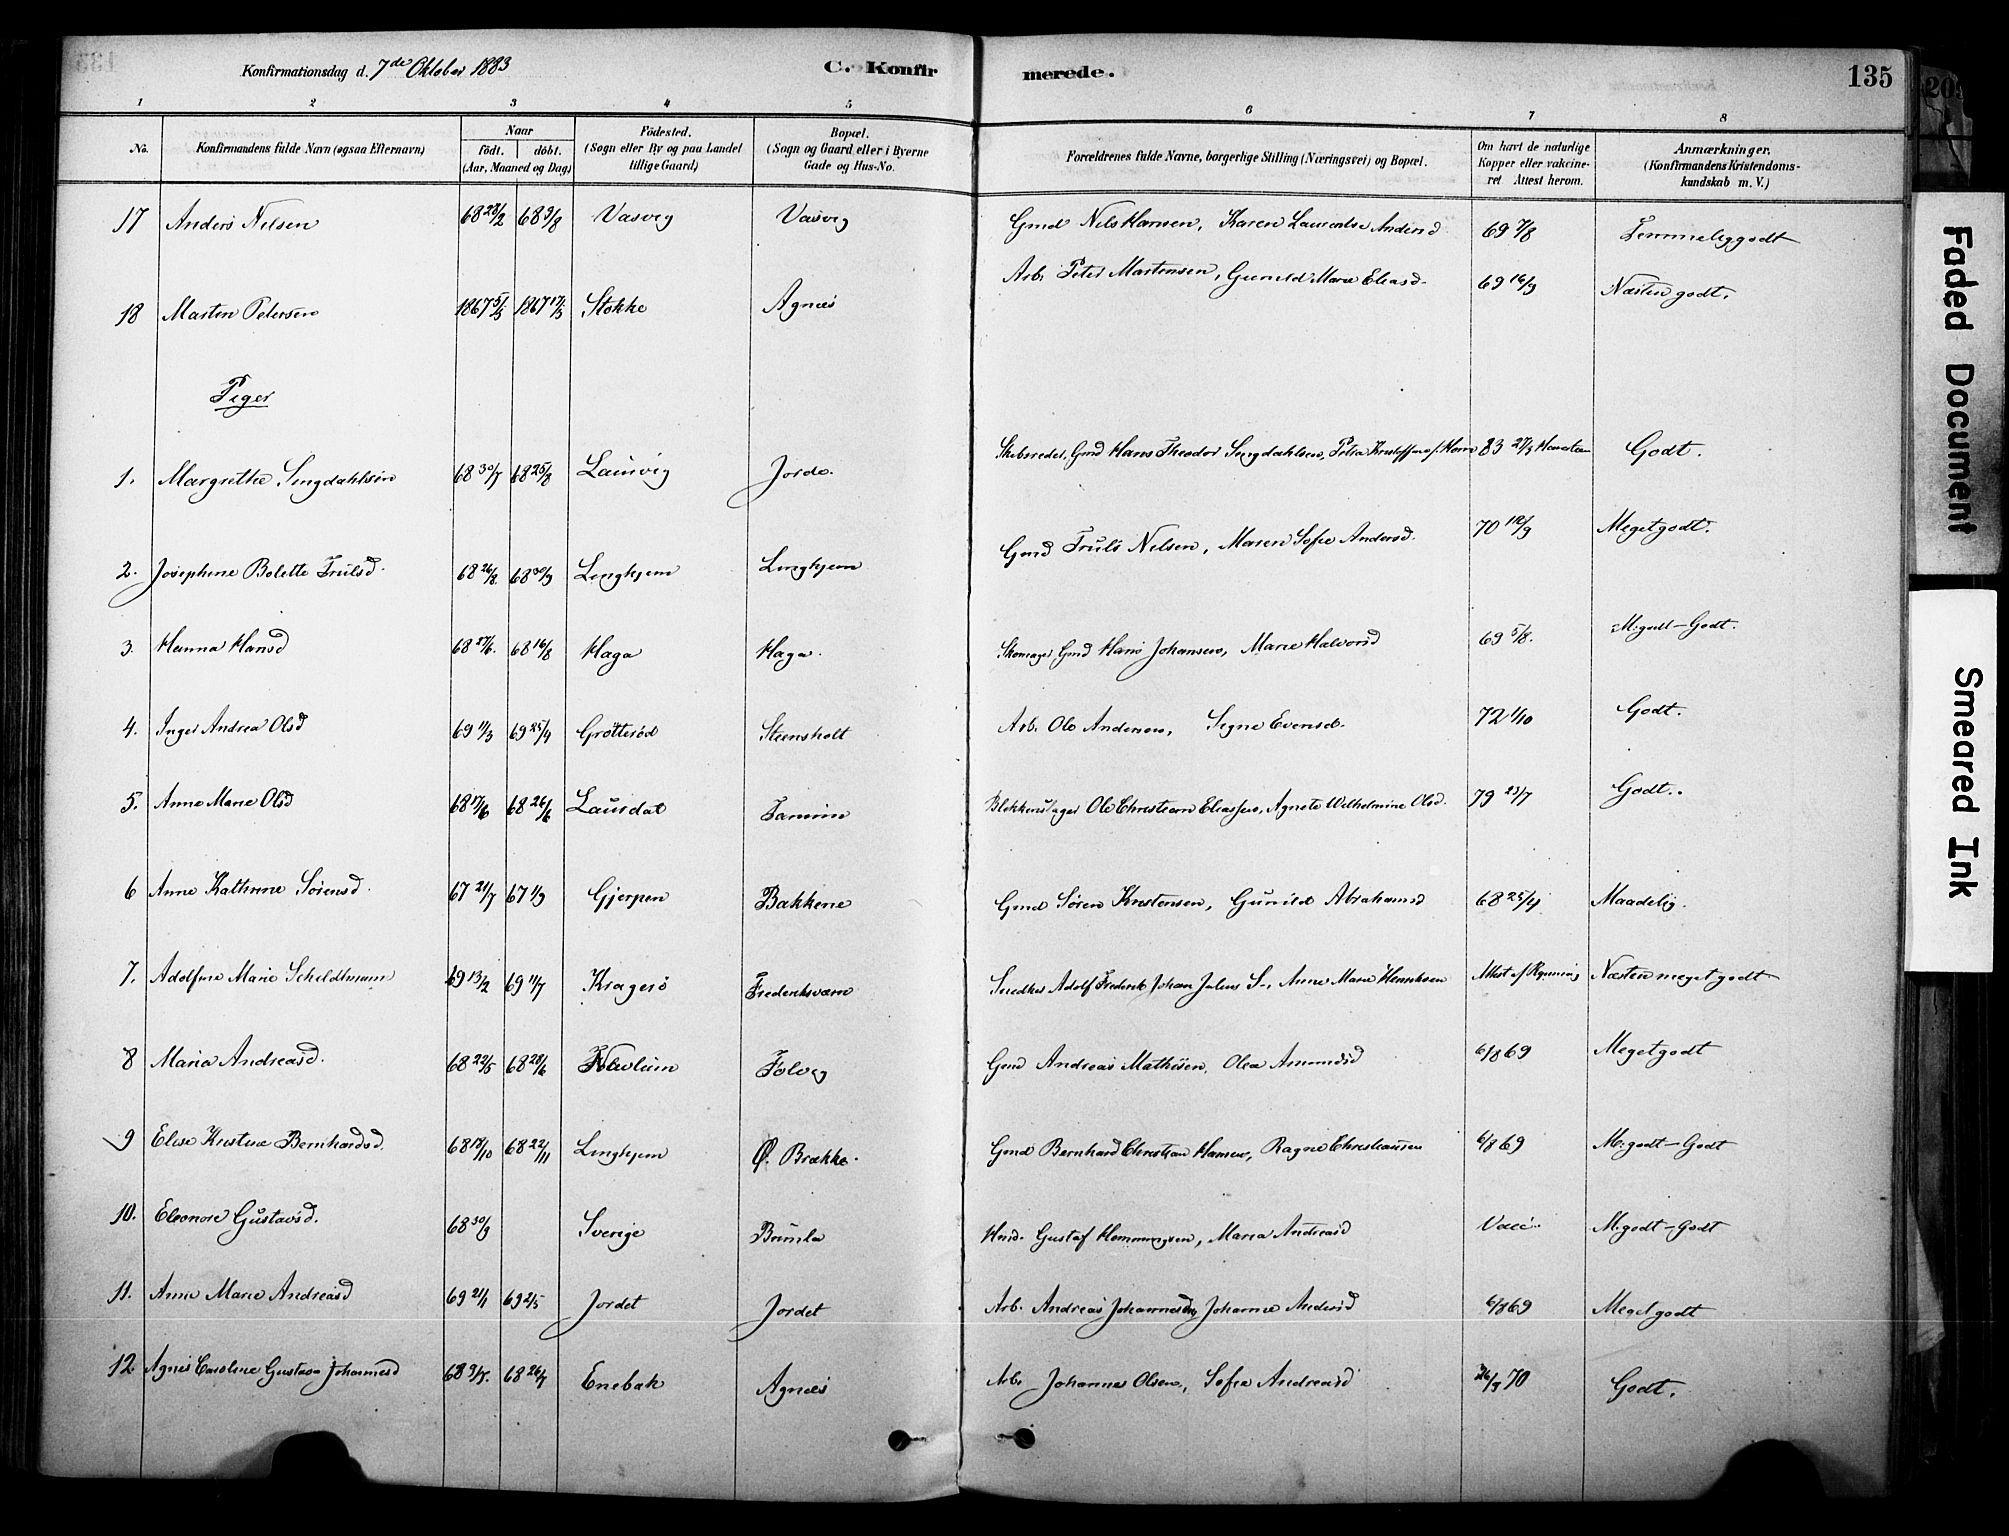 Konfirmationsdag d. 7de Oktober 1883 C. Konfirmerede. 135
1 2 3 4 5 6 7 8
No. Konfirmandens fulde Navn (ogsaa Efternavn) Naar født. døbt. (Aar, Maaned og Dag) Fødested. (Sogn eller By og paa Landet tillige Gaard) Bopæl. (Sogn og Gaard eller i Byerne Gade og Hus-No. Forældrenes fulde Navne, borgerlige Stilling (Næringsvei) og Bopæl. Om havt de naturlige Kopper eller vakcineret Attest herom. Anmærkninger. (Konfirmandens Kristendomskundskab m. V.)
17 Anders Nilsen 68 28/2 68 9/8 Vasvig Vasvig Gmd Nils Hansen, Karen Laurentse Andersd 69 7/8 Temmeliggodt
18 Marten Petersen 1867 5/5 1867 17/5 Stokke Agnæs Arb. Peter Martensen, Gunild Marie Eliasd. 69 16/9 Næsten godt.
Piger
1. Margrethe Singdahlsen 68 30/7 68 25/8 Laurvig Jorde. Skibsreder, Gmd Hans Theodor Singdahlsen, Petra f. Horn 83 27/9 Godt.
2. Josephine Bolette Trulsd. 68 26/8 68 20/9 Linghjem Linghjem Gmd Truls Nilsen, Maren Sofie Andersd. 70 18/9 Megetgodt.
3. Hanna Hansd 68 27/6. 68 16/8 Haga Haga. Skomager, Gmd Hans Johansen, Marie Halvorsd 69 5/8. M.godt-Godt.
4. Inger Andrea Olsd 69 11/3 69 25/4 Grøtterød Steensholt Arb. Ole Andersen, Signe Evensd. 72 1/10 Godt.
5. Anne Marie Olsd 68 17/6 68 26/6 Laurdal Farmin Blokkemager Ole Christian Eliassen, Agnete Wilhelmine Olsd. 79 23/7 Godt.
6 Anne Kathrine Sørensd. 67 21/7 67 1/9 Gjerpen Bakkene Gmd Søren Kristensen, Gunild Abrahamsd 68 25/4 Maadelig.
7. Adolfine Marie Scheldtmann 69 13/2 69 11/7 Kragerø Frederiksværn Snedker Adolf Frederik Johan Julius S-, Anne Marie Henriksen Attest af Næsten megetgodt
8 Maria Andreasd. 68 22/5 68 28/6 Tolvig Gmd Andreas Mathisen, Olea Amundsd 6/8 69 Megetgodt
9 Elise Kristine Bernhardsd. 68 17/10 68 22/11 Linghjem Ø. Brække. Gmd Bernhard Christian Hansen, Ragne Christiansen 6/8 69 M.godt-Godt
10. Eleonore Gustavsd. 68 30/9 Sverige Brunla Hmd. Gustaf Hemmingsen, Maria Andreasd Vacc. M.godt-Godt
11. Anne Marie Andreasd 69 21/1 69 2/5 Jordet Jordet Arb. Andreas Johannesen, Johanne Andersd 6/8 69 Megetgodt
12. Agnes Caroline Gustava Johannesd 68 9/5. 68 26/7 Enebak Agnæs Arb. Johannes Olsen, Sofie Andreasd 26/9 70 Godt.
Faded Document
Smeared Ink